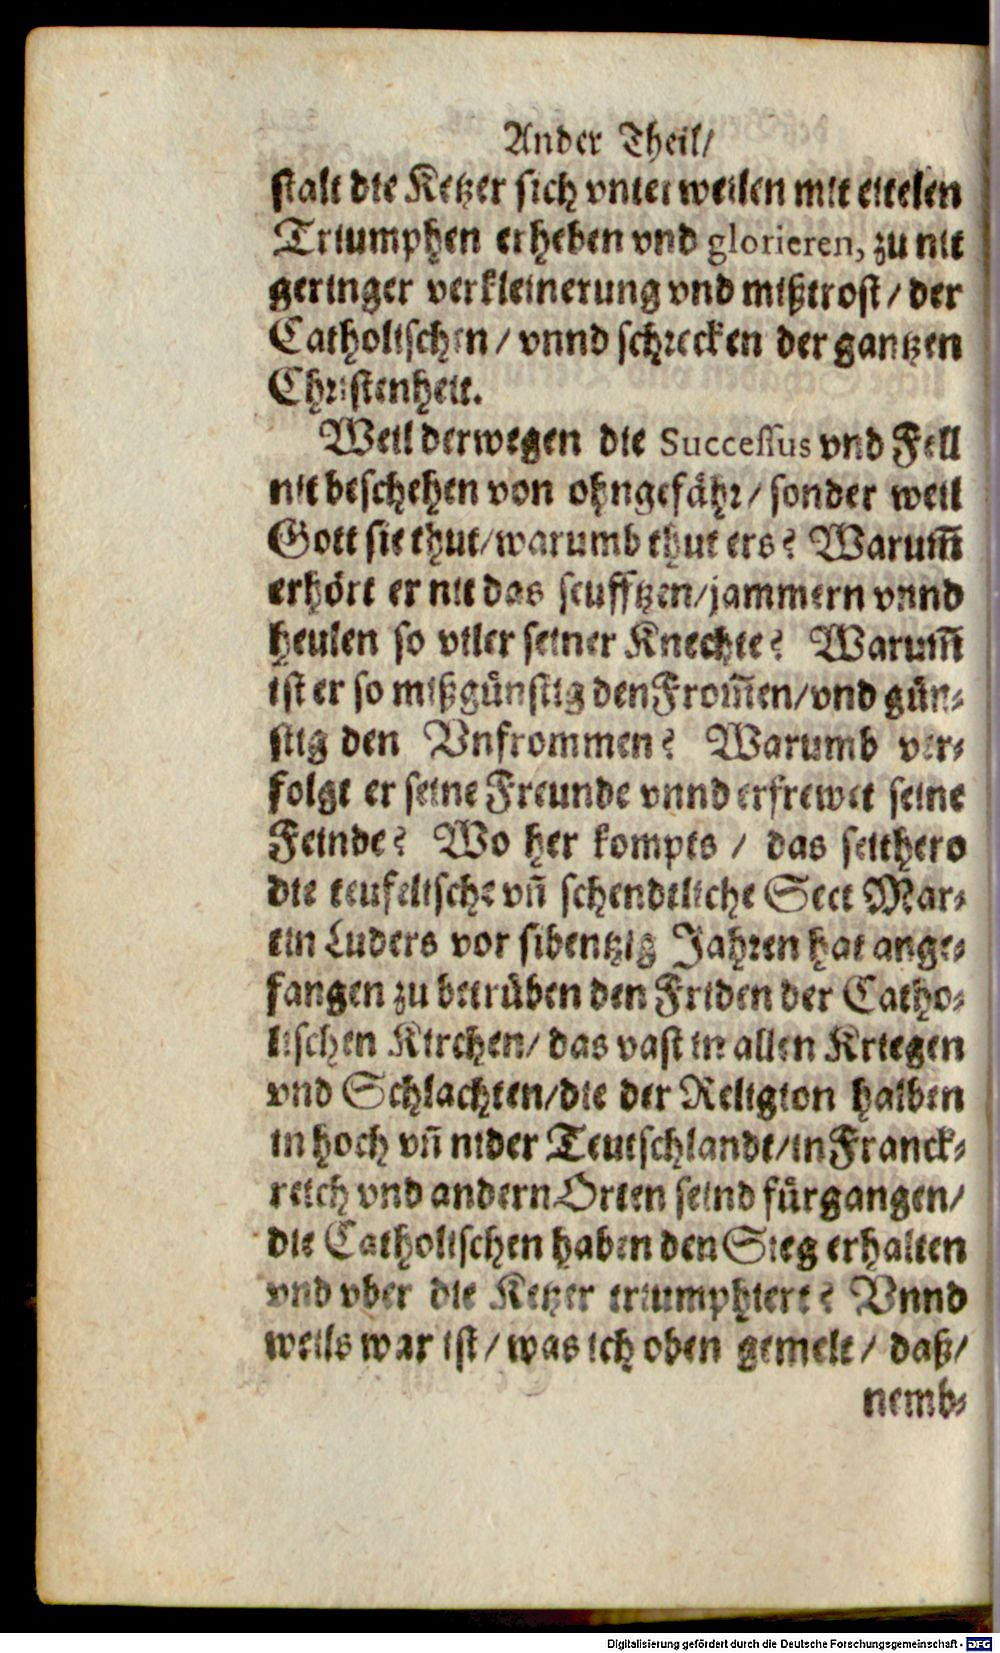 Ander Theil/
stalt die Ketzer sich vnterweilen mit eitelen
Triumphen erheben vnd glorieren, zu nit
geringer verkleinerung vnd mißtrost / der
Catholischen / vnnd schrecken der gantzen
Christenheit.
Weil derwegen die Successus vnd Fell
nit beschehen von ohngefähr / sonder weil
Gott sie thut/warumb thut ers? Warum̃
erhört er nit das seufftzen/jammern vnnd
heulen so viler seiner Knechte? Warum̃
ist er so mißgünstig den From̃en/vnd gün-
stig den Vnfrommen? Warumb ver-
folgt er seine Freunde vnnd erfrewet seine
Feinde? Wo her kompts / das seithero
die teufelische vñ schendtliche Sect Mar-
tin Luders vor sibentzig Jahren hat ange-
fangen zu betrüben den Friden der Catho-
lischen Kirchen/ das vast in allen Kriegen
vnd Schlachten/die der Religion halben
in hoch vñ nider Teutschlandt/in Franck-
reich vnd andern Orten seind fürgangen/
die Catholischen haben den Sieg erhalten
vnd vber die Ketzer triumphiert? Vnnd
weils war ist / was ich oben gemelt / daß/
nemb-
Digitalisierung gefördert durch die Deutsche Forschungsgemeinschaft - DFG